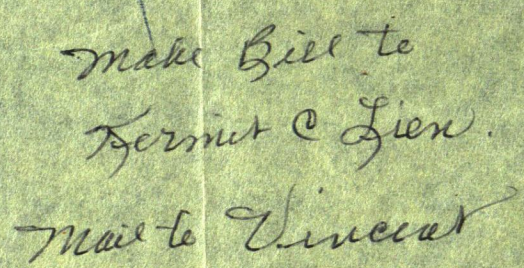 Make Bill to
Kermit C Lien.
Mail to Vincent